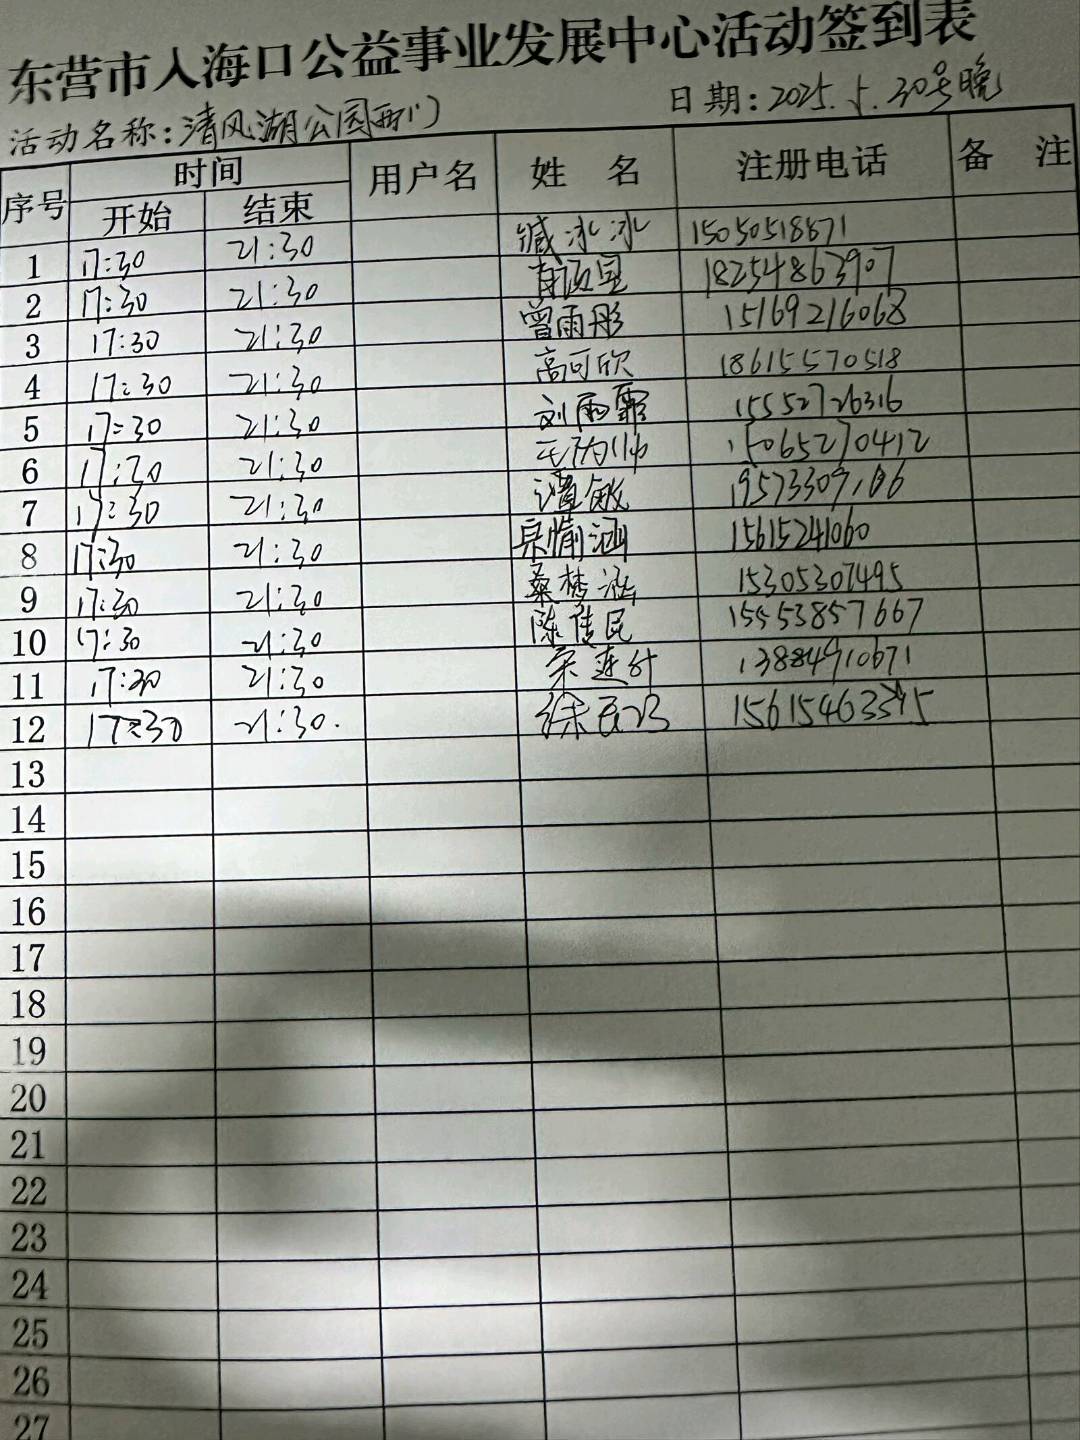 东营市入海口公益事业发展中心活动签到表
活动名称:清风湖公园西门 日期:2025.5.30号晚
序号 时间 用户名 姓 名 注册电话 备 注
开始 结束
1 17:30 21:30 臧冰冰 15050518671
2 17:30 21:30 18254863907
3 17:30 21:30 曾雨彤 15169216068
4 17:30 21:30 高可欣 18615570518
5 17:30 21:30 刘雨霏 15552726316
6 17:30 21:30 15065270412
7 17:30 21:30 敏
8 17:30 21:30 涵 15615241060
9 17:30 21:30 桑梦涵 15305307495
10 17:30 21:30 陈佳民 15553857667
11 17:30 21:30 13884910671
12 17:30 21:30. 徐
13
14
15
16
17
18
19
20
21
22
23
24
25
26
27